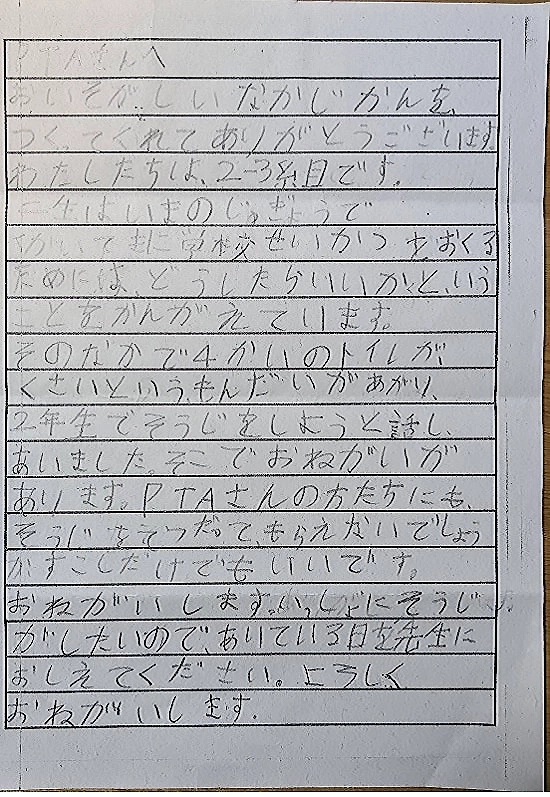 PTAさんへ
おいそがしいなかじかんを、
つくってくれてありがとうございます
わたしたちは、2-3組目です。
二年生はいまのじゅぎょうで
学校せいかつをおくる
ためには、どうしたらいいか、と、いう
ことをかんがえています。
そのなかで4かいのトイレが、
くさいという、もんだいがあがり、
2年生でそうじをしようと話し、
あいました。そこでおねがいが
あります。PTAさんの方たちにも、
そうじをてつだって、もらえないでしょう
かすこしだけでもいいです。
おねがいします。いっしょにそうじ
がしたいので、あいている日を先生に
おしえてください。よろしく
おねがいします。